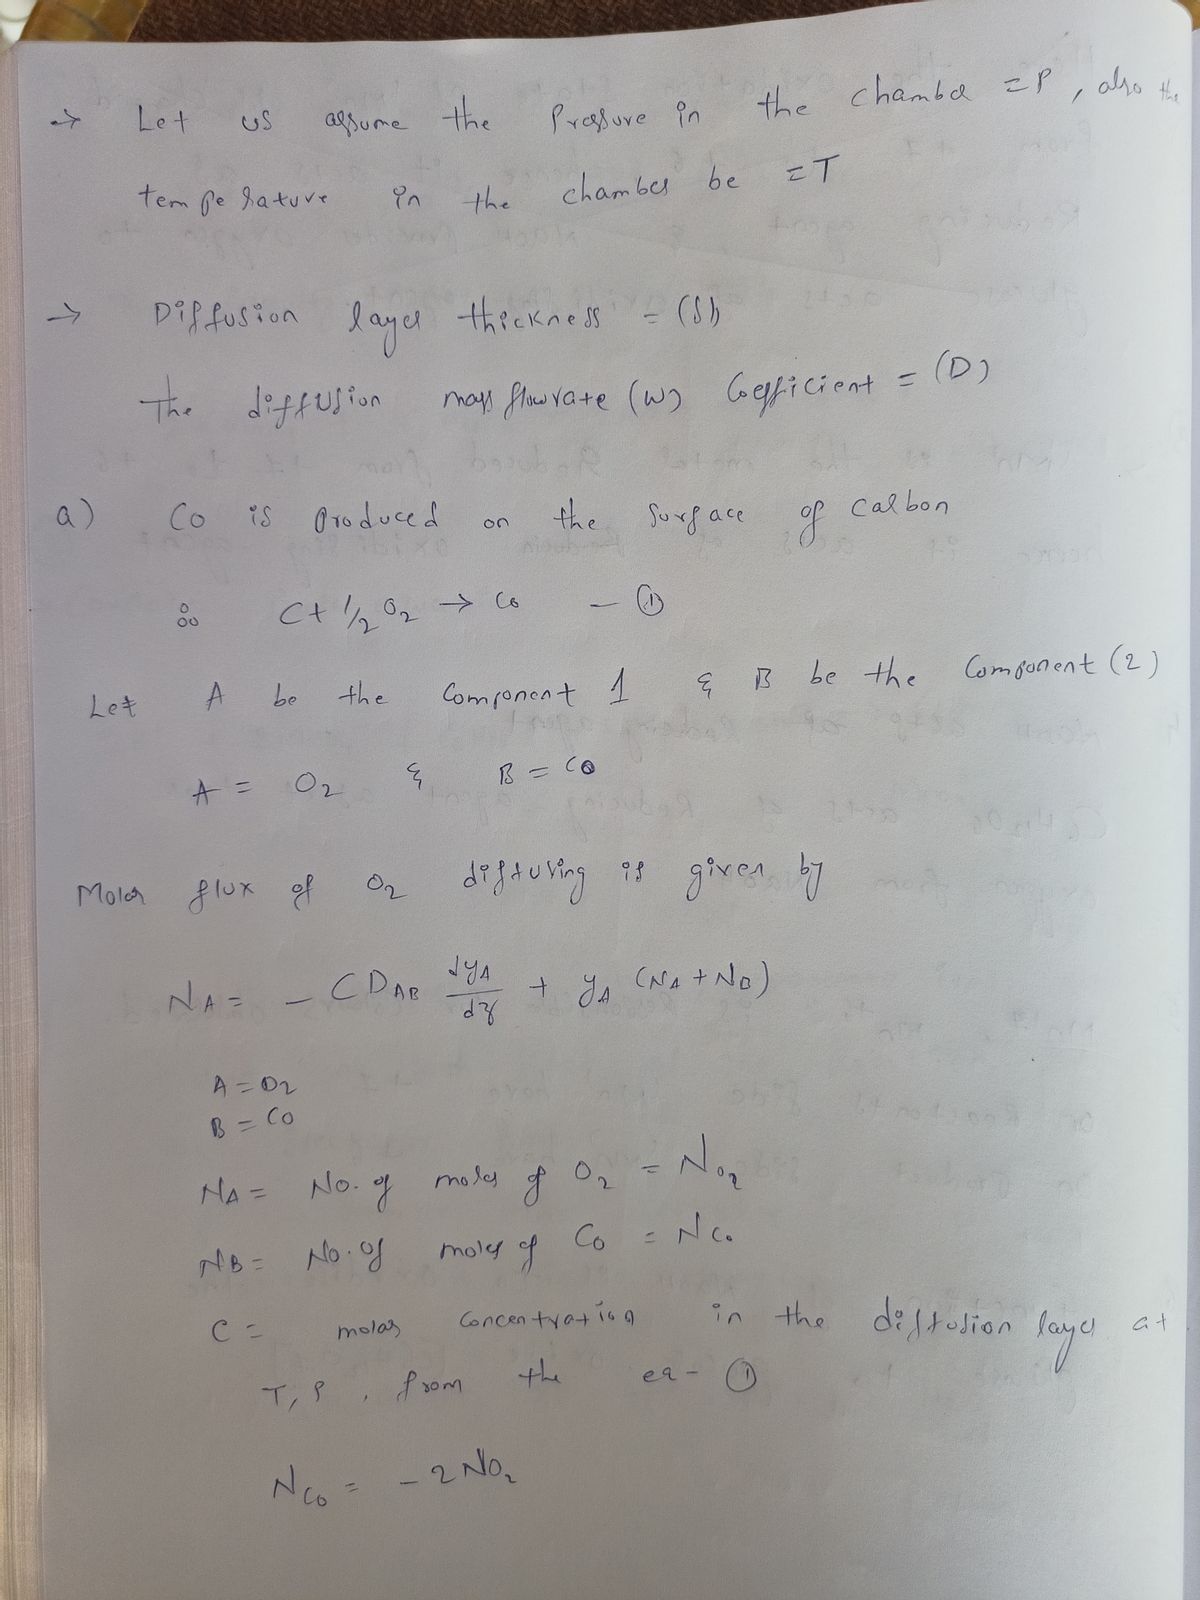 → Let us assume the Pressure in the chamber = P, also the
temperature in the chamber be = T
→ Diffusion layer thickness = (δ)
The diffusion mass flowrate (W) Coefficient = (D)
a) CO is produced on the surface of carbon
∴ C + 1/2 O2 → CO — ①
Let A be the Component 1 & B be the Component (2)
A = O2 & B = CO
Molar flux of O2 diffusing is given by
NA = - CDAB dyA/dz + yA (NA + NB)
A = O2
B = CO
NA = No. of moles of O2 = NO2
NB = No. of moles of CO = NCO
C = molar concentration in the diffusion layer at
T, P, from the eq - ①
NCO = - 2 NO2